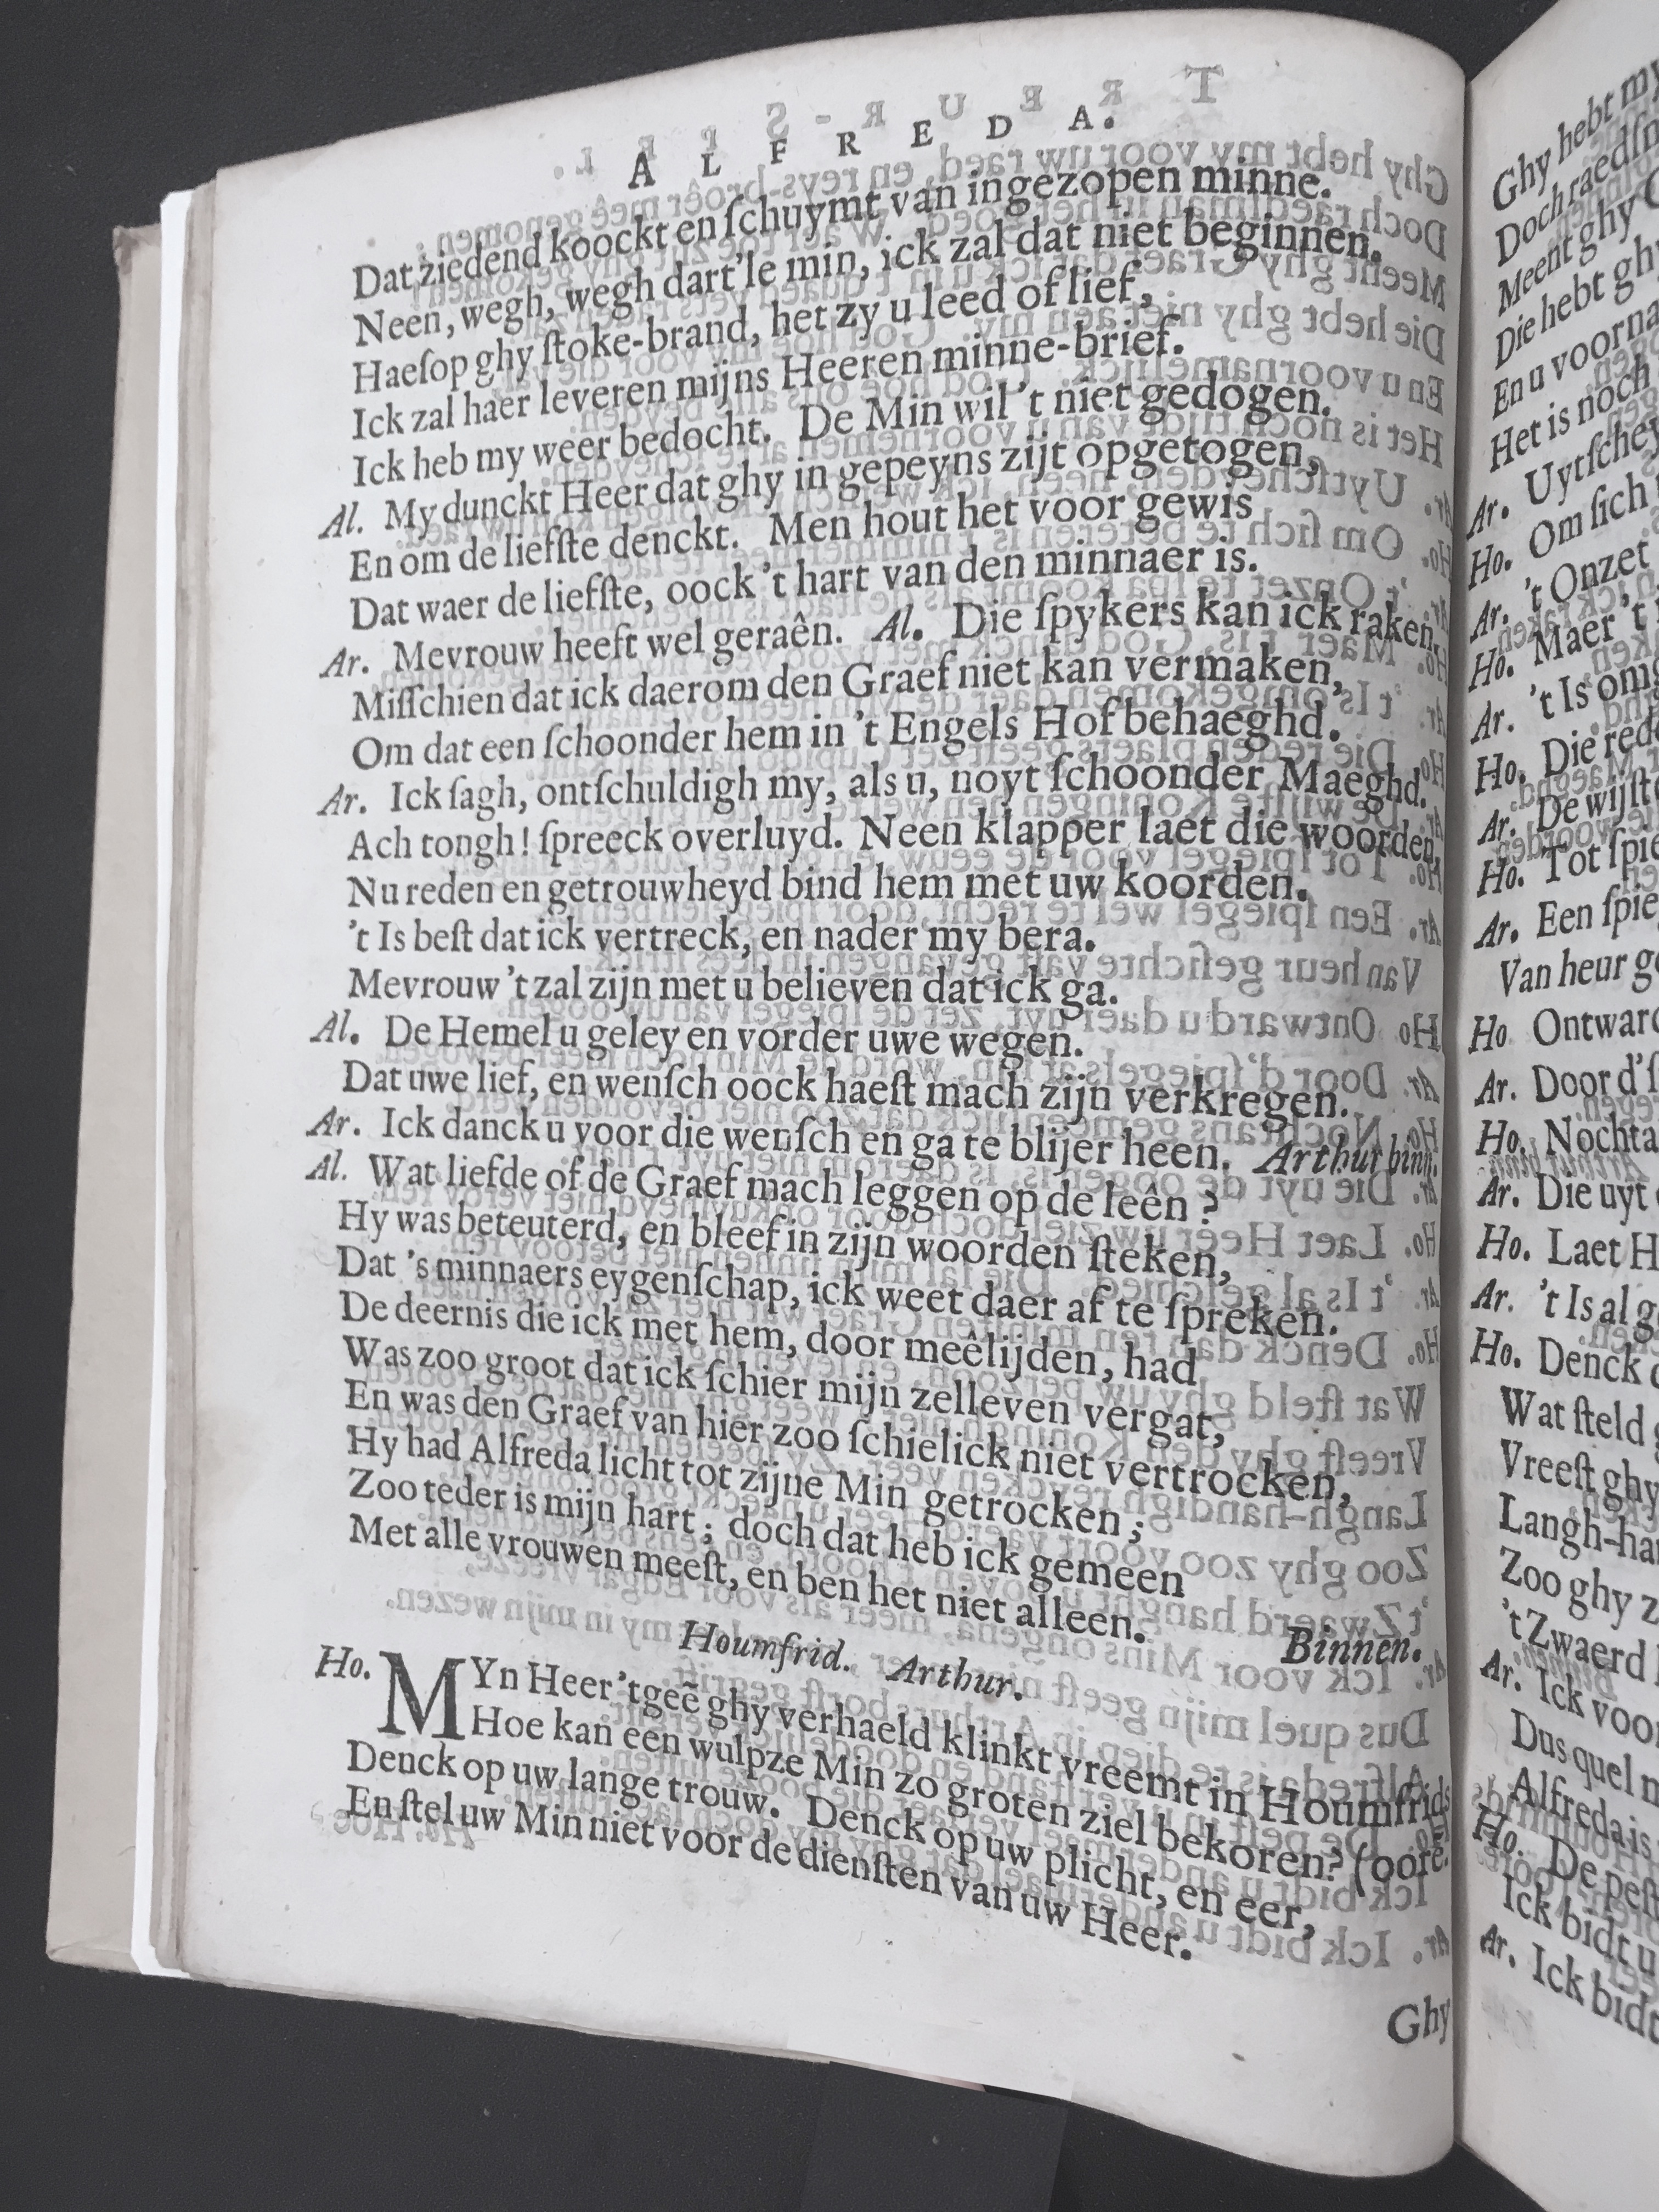 ALFREDA.
Dat ziedend koockt en ſchuymt van ingezopen minne.
Neen, wegh, wegh dart'le min, ick zal dat niet beginnen.
Haeſop ghy ſtoke-brand, het zy u leed of lief,
Ick zal haer leveren mijns Heeren minne-brief.
Ick heb my weer bedocht. De Min wil 't niet gedogen.
Al. My dunckt Heer dat ghy in gepeyns zijt opgetogen,
En om de liefſte denckt. Men hout het voor gewis
Dat waer de liefſte, oock 't hart van den minnaer is.
Ar. Mevrouw heeft wel geraên. Al. Die ſpykers kan ick raken,
Miſſchien dat ick daerom den Graef niet kan vermaken,
Om dat een ſchoonder hem in 't Engels Hof behaeghd.
Ar. Ick ſagh, ontſchuldigh my, als u, noyt ſchoonder Maeghd.
Ach tongh! ſpreeck overluyd. Neen klapper laet die woorden,
Nu reden en getrouwheyd bind hem met uw koorden.
't Is beſt dat ick vertreck, en nader my bera.
Mevrouw 't zal zijn met u believen dat ick ga.
Al. De Hemel u geley en vorder uwe wegen.
Dat uwe lief, en wenſch oock haeſt mach zijn verkregen.
Ar. Ick danck u voor die wenſch en ga te blijer heen. Arthur binn.
Al. Wat liefde of de Graef mach leggen op de leên?
Hy was beteuterd, en bleef in zijn woorden ſteken,
Dat 's minnaers eygenſchap, ick weet daer af te ſpreken.
De deernis die ick met hem, door meêlijden, had
Was zoo groot dat ick ſchier mijn zelleven vergat,
En was den Graef van hier zoo ſchielick niet vertrocken,
Hy had Alfreda licht tot zijne Min getrocken;
Zoo teder is mijn hart; doch dat heb ick gemeen
Met alle vrouwen meeſt, en ben het niet alleen.
Binnen.
Houmfrid. Arthur.
Ho. MYn Heer 'tgeẽ ghy verhaeld klinkt vreemt in Houmfrids
Hoe kan een wulpze Min zo groten ziel bekoren? (oorẽ.
Denck op uw lange trouw. Denck op uw plicht, en eer,
En ſtel uw Min niet voor de dienſten van uw Heer.
Ghy
Ghy hebt my
Doch raedſ
Meent ghy
Die hebt ghy
En u voorna
Het is noch
Ar. Uytſchey
Ho. Om ſich
Ar. 't Onzet
Ho. Maer 't
Ar. 't Is omg
Ho. Die rede
Ar. De wijſt
Ho. Tot ſpie
Ar. Een ſpie
Van heur ge
Ho Ontward
Ar. Door d'ſ
Ho. Nochta
Ar. Die uyt
Ho. Laet H
Ar. 't Is al g
Ho. Denck
Wat ſteld
Vreeſt ghy
Langh-ha
Zoo ghy z
't Zwaerd
Ar. Ick voo
Dus quel m
Alfreda is
Ho. De peſt
Ick bidt u
Ar. Ick bidt